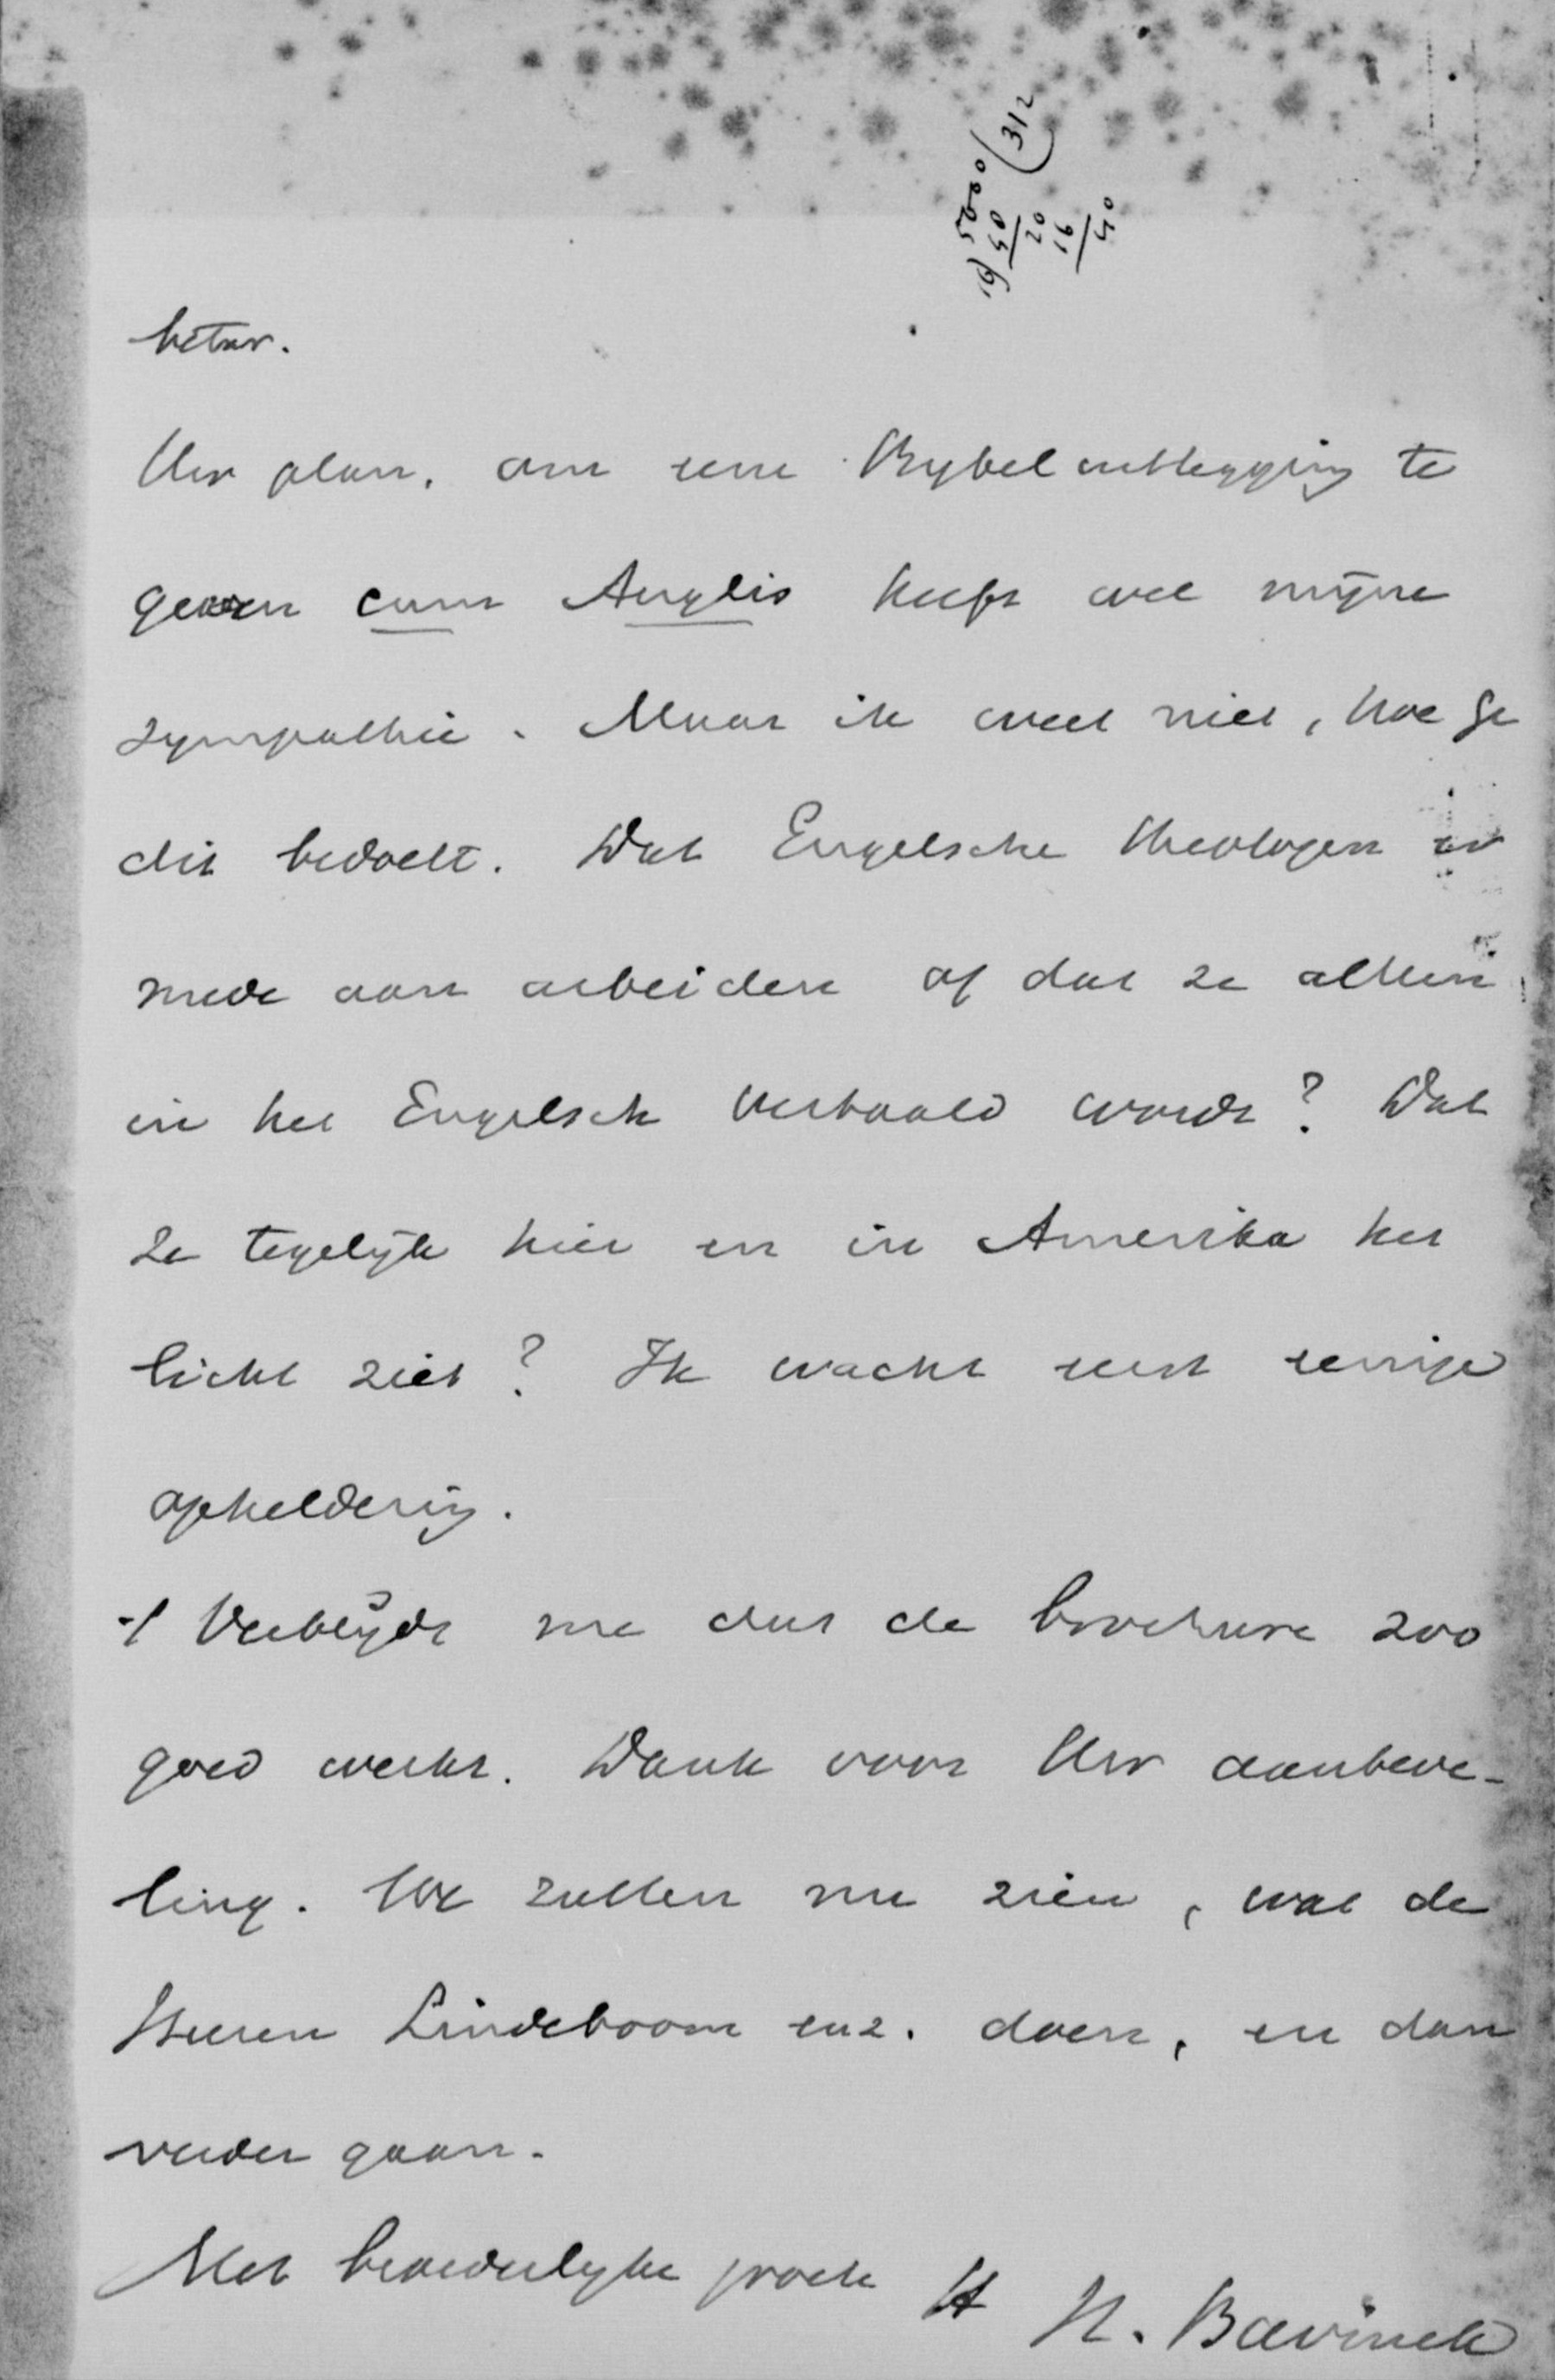 16) 5000 (312
50
20
16
40
beter.
Uw plan, om eene Bybeluitlegging te
geven cum Anglis heeft wel mijne
sympathie. Maar ik weet niet, hoe ge
dit bedoelt. Dat Engelsche theologen er
mede aan arbeiden of dat ze alleen
in het Engelsch vertaald wordt? Dat
ze tegelijk hier en in Amerika het
licht ziet? Ik wacht eerst eenige
opheldering.
't Verblijdt me dat de brochure zoo
goed werkt. Dank voor Uw aanbeve-
ling. We zullen nu zien, wat de
Heeren Lindeboom enz. doen, en dan
verder gaan.
Met broederlyke groete
H. Bavinck